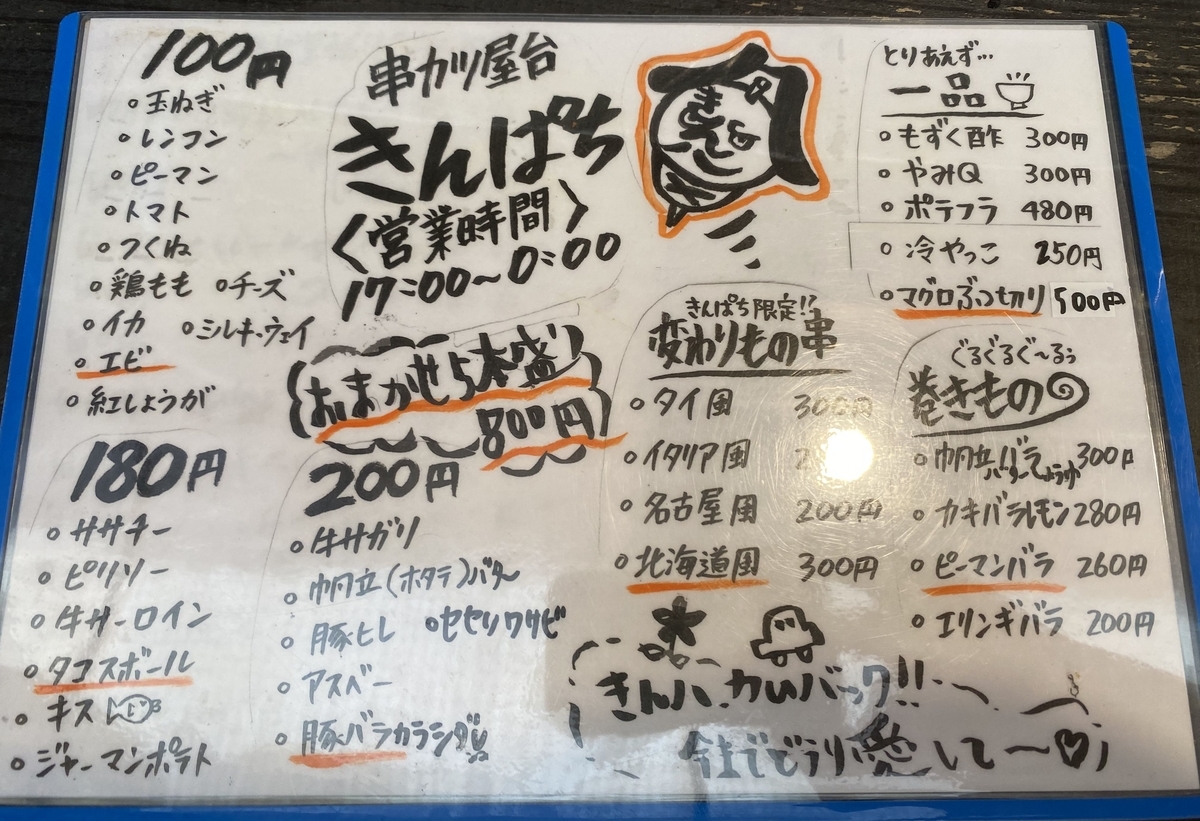 100円
玉ねぎ
レンコン
ピーマン
トマト
つくね
鶏もも
チーズ
イカ
シルキーウェイ
エビ
紅しょうが
180円
ササチー
ピリソー
牛サーロイン
タコスボール
キス
ジャーマンポテト
串カツ屋台
きんぱち
〈営業時間〉
17:00〜0:00
おまかせ5本盛
800円
200円
牛サガリ
帆立(ホタテ)バター
豚ヒレ
セセリワサビ
アスベー
豚バラカラシ
きんぱち限定!?
変わりもの串
タイ風 300円
イタリア風
名古屋風 200円
北海道風 300円
とりあえず…
一品
もずく酢 300円
やみQ 300円
ポテフラ 480円
冷やっこ 250円
マグロぶつ切り 500円
ぐるぐるぐ〜るぅ
巻きもの
帆立バラ 300円
バターしょうゆ
カキバラレモン 280円
ピーマンバラ 260円
エリンギバラ 200円
バック!!
今までどうり愛して〜♡